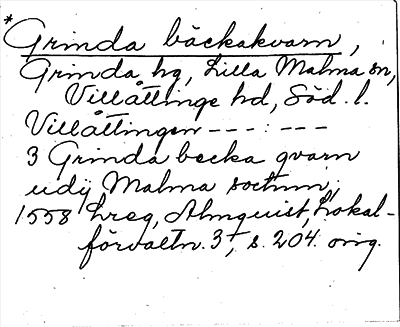 * Grinda bäckakvarn,
Grinda hg, Lilla Malma sn,
Villåttinge hd, Söd. l.
Villåttingen --- : ---
3 Grinda becka qvarn
udij Malma sochnn;
1558 hreg, Almquist, Lokal-
förvaltn. 3, s. 204. orig.